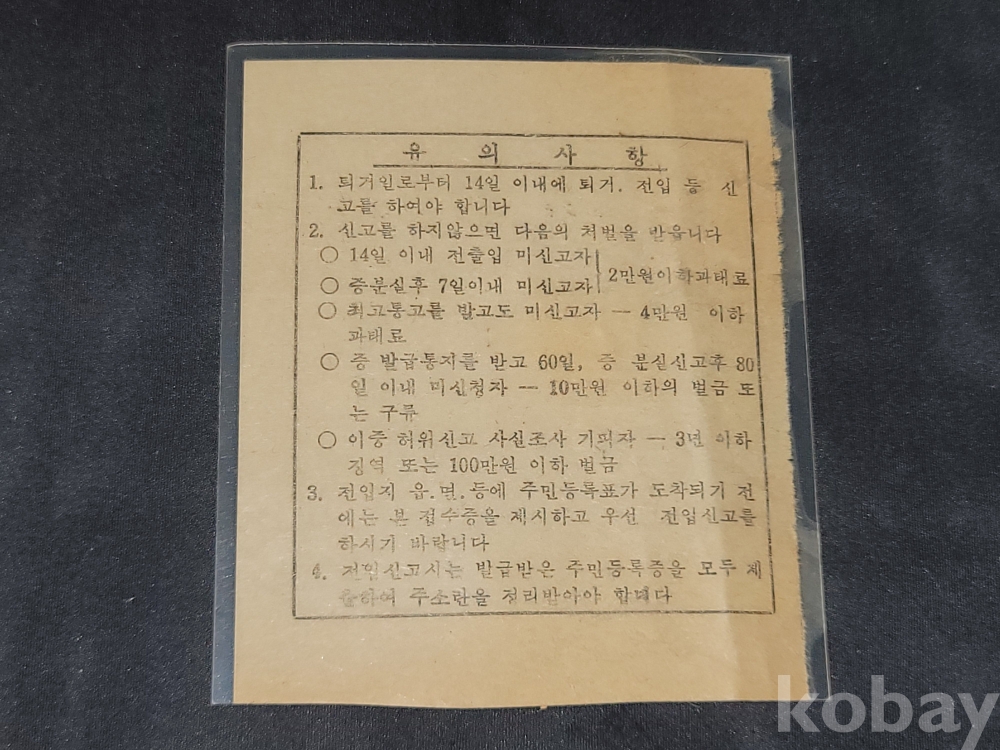 유 의 사 항
1. 퇴거일로부터 14일 이내에 퇴거. 전입 등 신
고를 하여야 합니다
2. 신고를 하지않으면 다음의 처벌을 받읍니다
○ 14일 이내 전출입 미신고자
○ 증분실후 7일이내 미신고자
2만원이하과태료
○ 최고통고를 받고도 미신고자 — 4만원 이하
과태료
○ 증 발급통지를 받고 60일, 증 분실신고후 30
일 이내 미신청자 — 10만원 이하의 벌금 또
는 구류
○ 이중 허위신고 사실조사 기피자 — 3년 이하
징역 또는 100만원 이하 벌금
3. 전입지 읍.면.동에 주민등록표가 도착되기 전
에는 본 접수증을 제시하고 우선 전입신고를
하시기 바랍니다
4. 전입신고시는 발급받은 주민등록증을 모두 제
출하여 주소란을 정리받아야 합니다
kobay